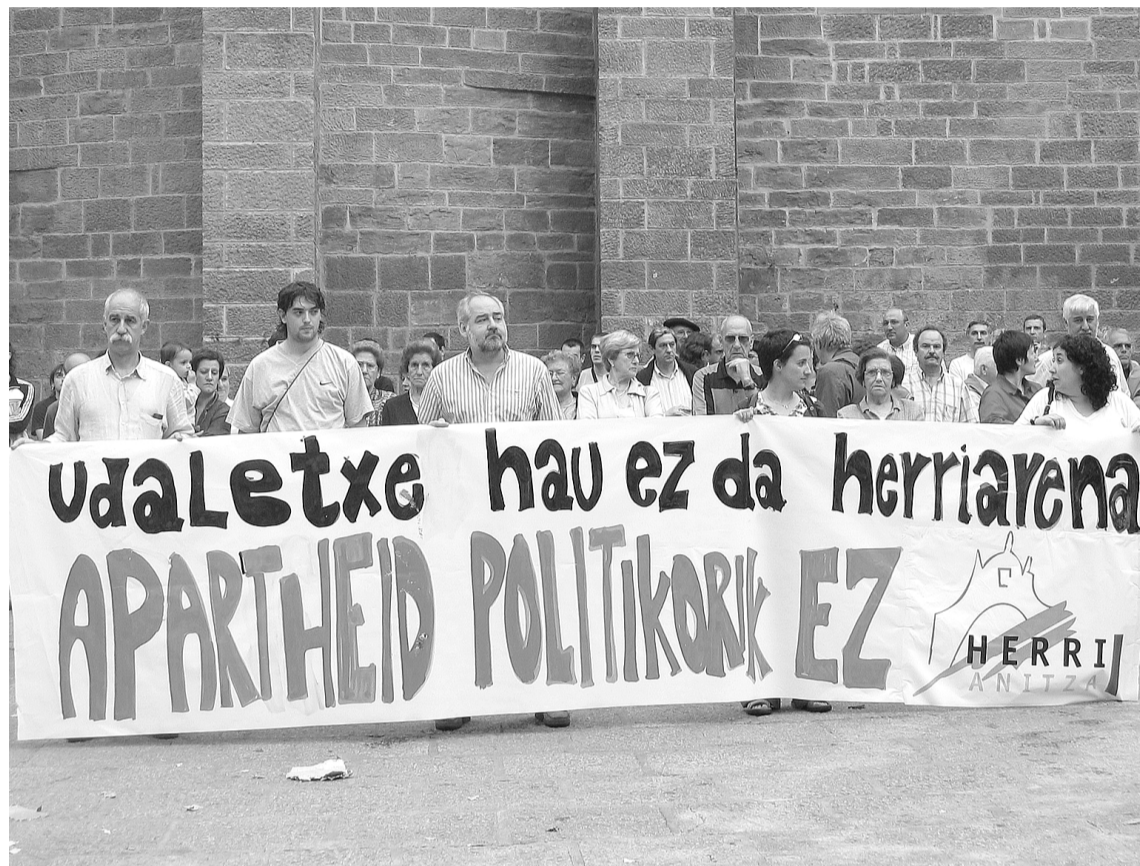 udaletxe hau ez da herriarena
APARTHEID POLITIKORIK EZ
HERRI
ANITZA